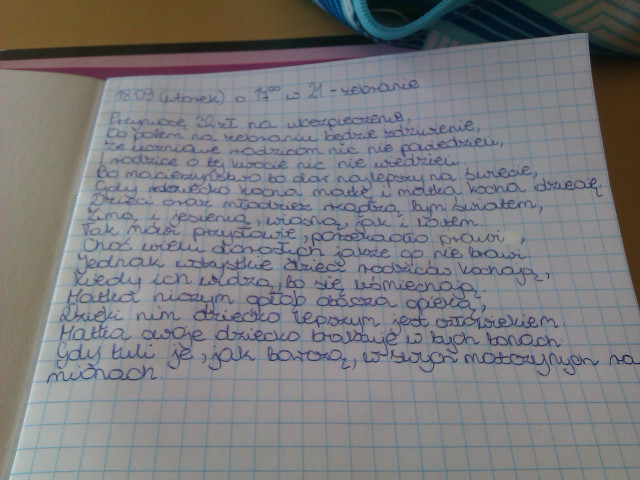 18.09 (wtorek) o 17⁰⁰ w 21 - zebranie
Przynieść zł na ubezpieczenie,
Bo potem na zebraniu będzie zdziwienie,
że uczniowie rodzicom nic nie powiedzieli,
i rodzice o tej kwocie nic nie wiedzieli
Bo macierzyństwo to dar najlepszy na świecie,
Gdy dziecko kocha matkę i matka kocha dziecię.
Dzieci oraz młodzież rządzą tym światem,
Zimą, i jesienią, wiosną, jak i latem.
Tak mówi przysłowie, porzekadło prawi,
Choć wielu dorosłych jakże go nie bawi
Jednak wszystkie dzieci rodziców kochają,
Kiedy ich widzą, bo się uśmiechają
Matka niczym gołąb otacza opieką,
Dzięki nim dziecko lepszym jest człowiekiem.
Matka swoje dziecko traktuje w tych tonach
Gdy tuli je, jak w swych matczynych ra
mionach.